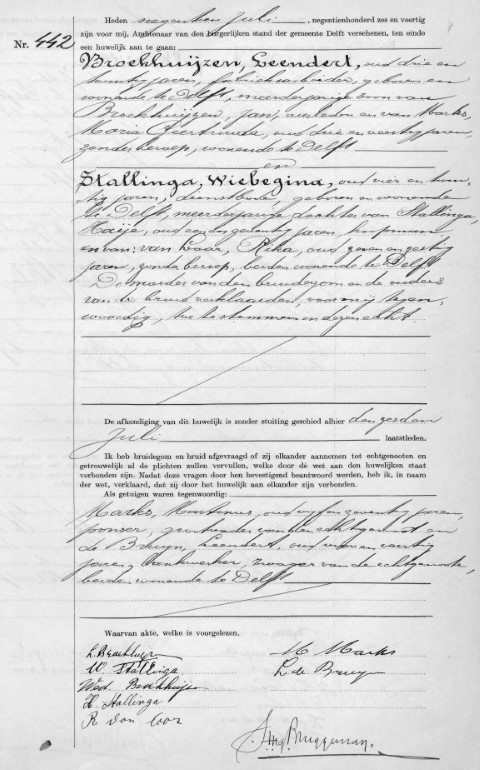 Heden negentien Juli, negentienhonderd zes en veertig
zijn voor mij, Ambtenaar van den burgerlijken stand der gemeente Delft verschenen, ten einde
een huwelijk aan te gaan:
Nr. 442
Broekhuijzen, Leendert, oud drie en
twintig jaren, fabrieksarbeider, geboren en
wonende te Delft, meerderjarige zoon van
Broekhuijzen, Jan, overleden en van Marks,
Maria Geertruida, oud drie en veertig jaren,
zonder beroep, wonende te Delft
en
Stallinga, Wiebegina, oud vier en twin-
tig jaren, dienstbode, geboren en wonende
te Delft, meerderjarige dochter van Stallinga,
oud een en zestig jaren,
en van: van Loar, Rika, oud zeven en zestig
jaren, zonder beroep, beiden wonende te Delft
De moeder van den bruidegom en de ouders
van de bruid verklaarden, voor mij tegen-
woordig, toe te stemmen in dezen echt.
De afkondiging van dit huwelijk is zonder stuiting geschied alhier den zesden
Juli laatstleden.
Ik heb bruidegom en bruid afgevraagd of zij elkander aannemen tot echtgenooten en
getrouwelijk al de plichten zullen vervullen, welke door de wet aan den huwelijken staat
verbonden zijn. Nadat deze vragen door hen bevestigend beantwoord werden, heb ik, in naam
der wet, verklaard, dat zij door het huwelijk aan elkander zijn verbonden.
Als getuigen waren tegenwoordig:
Marks, oud vijf en zeventig jaren,
grootvader van den echtgenoot en
de Bruyn, Leendert, oud vier en veertig
jaren, bankwerker, zwager van de echtgenoote,
beiden wonende te Delft
Waarvan akte, welke is voorgelezen.
L. Broekhuijzen M Marks
W. Stallinga L de Bruyn
Wed. Broekhuijzen
H. Stallinga
R van Loor
Bruggeman.